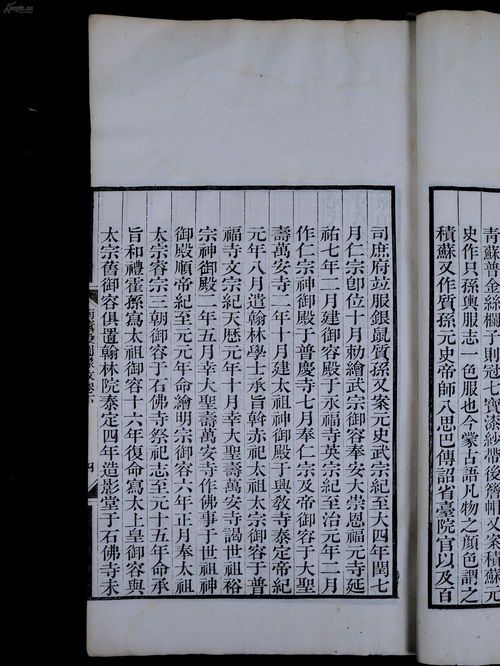 青蘇普金絲欄子則冠七寶漆紗帶後簷帽又案積蘇元
史作只孫輿服志一色服也今蒙古語凡物之顔色謂之
積蘇又作質孫元史帝師八思巴傳詔省臺院官以及百
司庶府竝服銀鼠質孫又案元史武宗紀至大四年閏七
月仁宗卽位十月勅繪武宗御容奉安大崇恩福元寺延
祐七年二月建御容殿于永福寺英宗紀至治元年二月
作仁宗神御殿于普慶寺七月奉仁宗及帝御容于大聖
壽萬安寺二年十月建太祖神御殿于興敎寺泰定帝紀
元年八月遣翰林學士承旨斡赤祀太祖太宗御容于普
福寺文宗紀天歷元年十月幸大聖壽萬安寺謁世祖裕
宗神御殿二年五月幸大聖壽萬安寺作佛事于世祖神
御殿順帝紀至元元年命繪明宗御容六年正月奉太祖
太宗睿宗三朝御容于石佛寺祭祀志至元十五年命承
旨和禮霍孫寫太祖御容十六年復命寫太上皇御容與
太宗舊御容俱置翰林院泰定四年造影堂于石佛寺未
四
Kongfz.cn